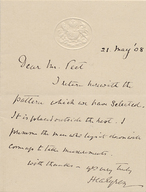 21 May '08
Dear Mr. Peet
I return herewith the
pattern which we have selected.
It is placed outside the rest. I
presume the man who lays it down will
come up to take measurements
with thanks — yrs very truly